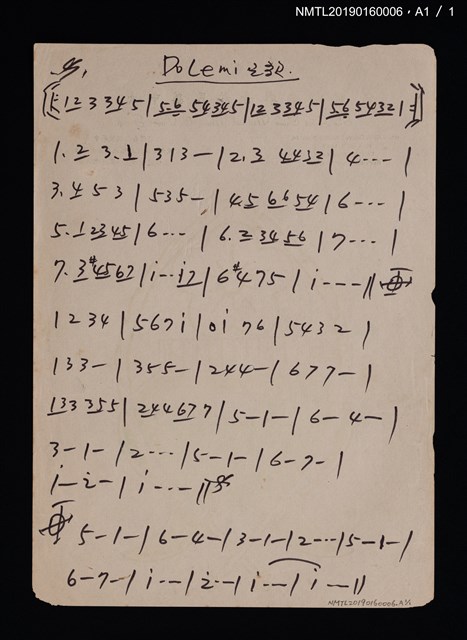 NMTL20190160006，A1 / 1
DoLemi
[𝄆 1 2 3 3 4 5 | 5 6 5 4 3 4 5 | 1 2 3 3 4 5 | 5 6 5 4 3 2 1 𝄇]
1. 2 3. 1 | 3 1 3 — | 2. 3 4 4 3 2 | 4 - - - |
3. 4 5 3 | 5 3 5 — | 4. 5 6 6 5 4 | 6 - - - |
5. 1 2 3 4 5 | 6 - - - | 6. 2 3 4 5 6 | 7 - - - |
7. 3 #4 5 6 7 | i - - i 7 | 6 #4 7 5 | i - - - ||
1 2 3 4 | 5 6 7 i | 0 i 7 6 | 5 4 3 2 |
1 3 3 — | 3 5 5 — | 2 4 4 — | 6 7 7 — |
1 3 3 3 5 5 | 2 4 4 6 7 7 | 5 — 1 — | 6 — 4 — |
3 — 1 — | 2 - - - | 5 — 1 — | 6 — 7 — |
i — 2 — | i - - - ||
5 — 1 — | 6 — 4 — | 3 — 1 — | 2 - - - | 5 — 1 — |
6 — 7 — | i - - | 2 - - | i - - - | i - - ||
NMTL20190160006.A35